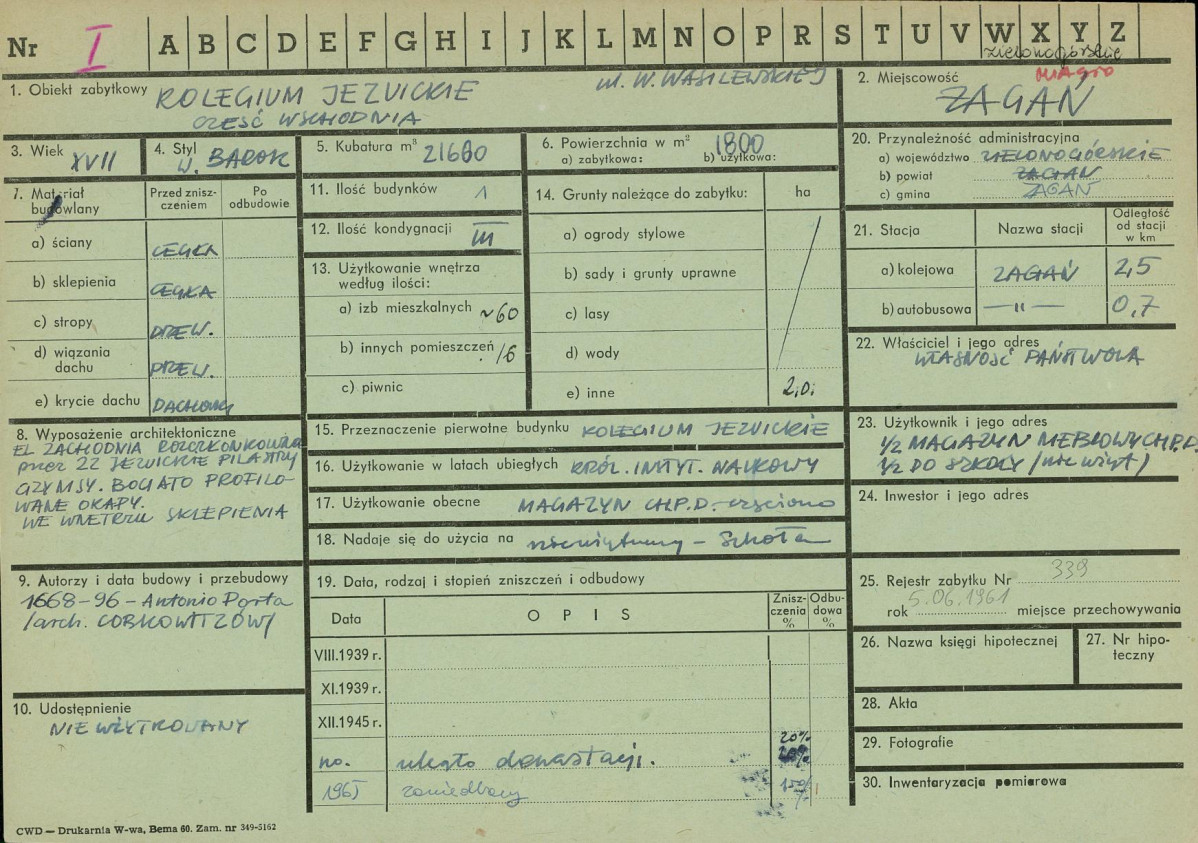 Nr I A B C D E F G H I J K L M N O P R S T U V W X Y Z
zielonogórskie
1. Obiekt zabytkowy KOLEGIUM JEZUICKIE
CZĘŚĆ WSCHODNIA
ul. W. WASILEWSKIEJ
2. Miejscowość miasto
ŻAGAŃ
3. Wiek XVII
4. Styl W. BAROK
5. Kubatura m³ 21660
6. Powierzchnia w m² 1800
a) zabytkowa: b) użytkowa:
20. Przynależność administracyjna
a) województwo ZIELONOGÓRSKIE
b) powiat ŻAGAŃ
c) gmina ŻAGAŃ
7. Materiał budowlany
Przed zniszczeniem
Po odbudowie
a) ściany CEGŁA
b) sklepienia CEGŁA
c) stropy DREW.
d) wiązania dachu DREW.
e) krycie dachu DACHÓWKA
11. Ilość budynków 1
12. Ilość kondygnacji III
13. Użytkowanie wnętrza
według ilości:
a) izb mieszkalnych ~60
b) innych pomieszczeń 16
c) piwnic
14. Grunty należące do zabytku: ha
a) ogrody stylowe
b) sady i grunty uprawne
c) lasy
d) wody
e) inne 2,0
21. Stacja
Nazwa stacji
Odległość
od stacji
w km
a) kolejowa ŻAGAŃ 2,5
b) autobusowa — " — 0,7
22. Właściciel i jego adres
WŁASNOŚĆ PAŃSTWOWA
8. Wyposażenie architektoniczne
EL ZACHODNIA ROZCZŁONKOWANA
przez 22 JEZUICKIE PILASTRY
GZYMSY. BOGATO PROFILO-
WANE OKAPY.
WE WNĘTRZU SKLEPIENIA
15. Przeznaczenie pierwotne budynku KOLEGIUM JEZUICKIE
16. Użytkowanie w latach ubiegłych KRÓL. INSTYT. NAUKOWY
17. Użytkowanie obecne MAGAZYN CH.P.D. - częściowo
18. Nadaje się do użycia na nieużytkowany - Szkoła
23. Użytkownik i jego adres
1/2 MAGAZYN MEBLOWY CH.P.D.
1/2 DO SZKOŁY (nie użyt)
24. Inwestor i jego adres
9. Autorzy i data budowy i przebudowy
1668-96 - Antonio Porta
/arch. LOBKOWITZÓW/
10. Udostępnienie
NIE UŻYTKOWANY
19. Data, rodzaj i stopień zniszczeń i odbudowy
Data
O P I S
Zniszczenia %
Odbudowa %
VIII.1939 r.
XI.1939 r.
XII.1945 r.
20%
no. uległo dewastacji. 20%
1965 zaniedbany 15%
25. Rejestr zabytku Nr 339
rok 5.06.1961 miejsce przechowywania
26. Nazwa księgi hipotecznej
27. Nr hipoteczny
28. Akta
29. Fotografie
30. Inwentaryzacja pomiarowa
CWD — Drukarnia W-wa, Bema 60. Zam. nr 349-5162